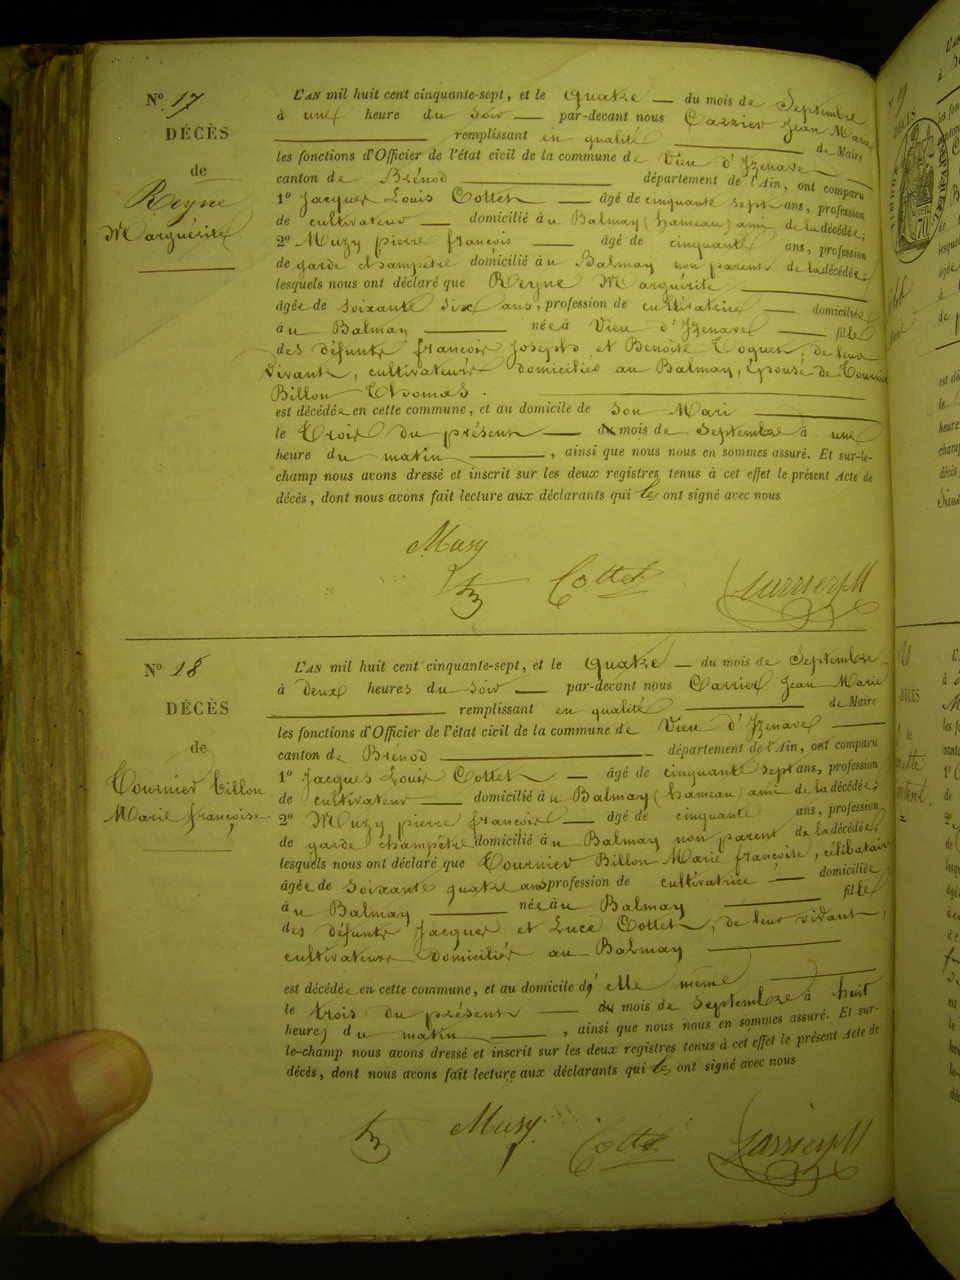 N° 17
DÉCÈS
de
Reyne
Marguérite
L'AN mil huit cent cinquante-sept, et le quatre du mois de Septembre
à une heure du soir par-devant nous Carrier Jean Marie
remplissant en qualité de Maire
les fonctions d'Officier de l'état civil de la commune de Vieu d'Izenave
canton de Brénod département de l'Ain, ont comparu
1° Jacques Louis Cottet âgé de cinquante sept ans, profession
de cultivateur domicilié àu Balmay (hameau) ami de la décédée;
2° Muzy pierre françois âgé de cinquante ans, profession
de garde champêtre domicilié àu Balmay non parent de la décédée;
lesquels nous ont déclaré que Reyne Marguérite
âgée de soixante six ans, profession de cultivatrice domiciliée
àu Balmay née à Vieu d'Izenave fille
des défunts françois Joseph et Benoite Coquet, de leur
vivant, cultivateurs domiciliés au Balmay, épouse de Tournier
Billon Thomas.
est décédée en cette commune, et au domicile de son Mari
le trois du présent mois de septembre à une
heure du matin, ainsi que nous nous en sommes assuré. Et sur-le-
champ nous avons dressé et inscrit sur les deux registres tenus à cet effet le présent Acte de
décès, dont nous avons fait lecture aux déclarants qui les ont signé avec nous
Muzy
Cottet
Carrier JM
N° 18
DÉCÈS
de
Tournier billon
Marie françoise,
L'AN mil huit cent cinquante-sept, et le quatre du mois de Septembre
à deux heures du soir par-devant nous Carrier Jean Marie
remplissant en qualité de Maire
les fonctions d'Officier de l'état civil de la commune de Vieu d'Izenave
canton de Brénod département de l'Ain, ont comparu
1° Jacques Louis Cottet âgé de cinquante sept ans, profession
de cultivateur domicilié àu Balmay (hameau) ami de la décédée;
2° Muzy pierre françois âgé de cinquante ans, profession
de garde champêtre domicilié àu Balmay non parent de la décédée;
lesquels nous ont déclaré que Tournier Billon Marie françoise, célibataire
âgée de soixante quatre ans profession de cultivatrice domiciliée
àu Balmay née àu Balmay fille
des défunts Jacques et Luce Cottet, de leur vivant,
cultivateurs domiciliés au Balmay
est décédée en cette commune, et au domicile d' elle même
le trois du présent mois de septembre à huit
heures du matin, ainsi que nous nous en sommes assuré. Et sur-
le-champ nous avons dressé et inscrit sur les deux registres tenus à cet effet le présent Acte de
décès, dont nous avons fait lecture aux déclarants qui les ont signé avec nous
Muzy
Cottet
Carrier JM